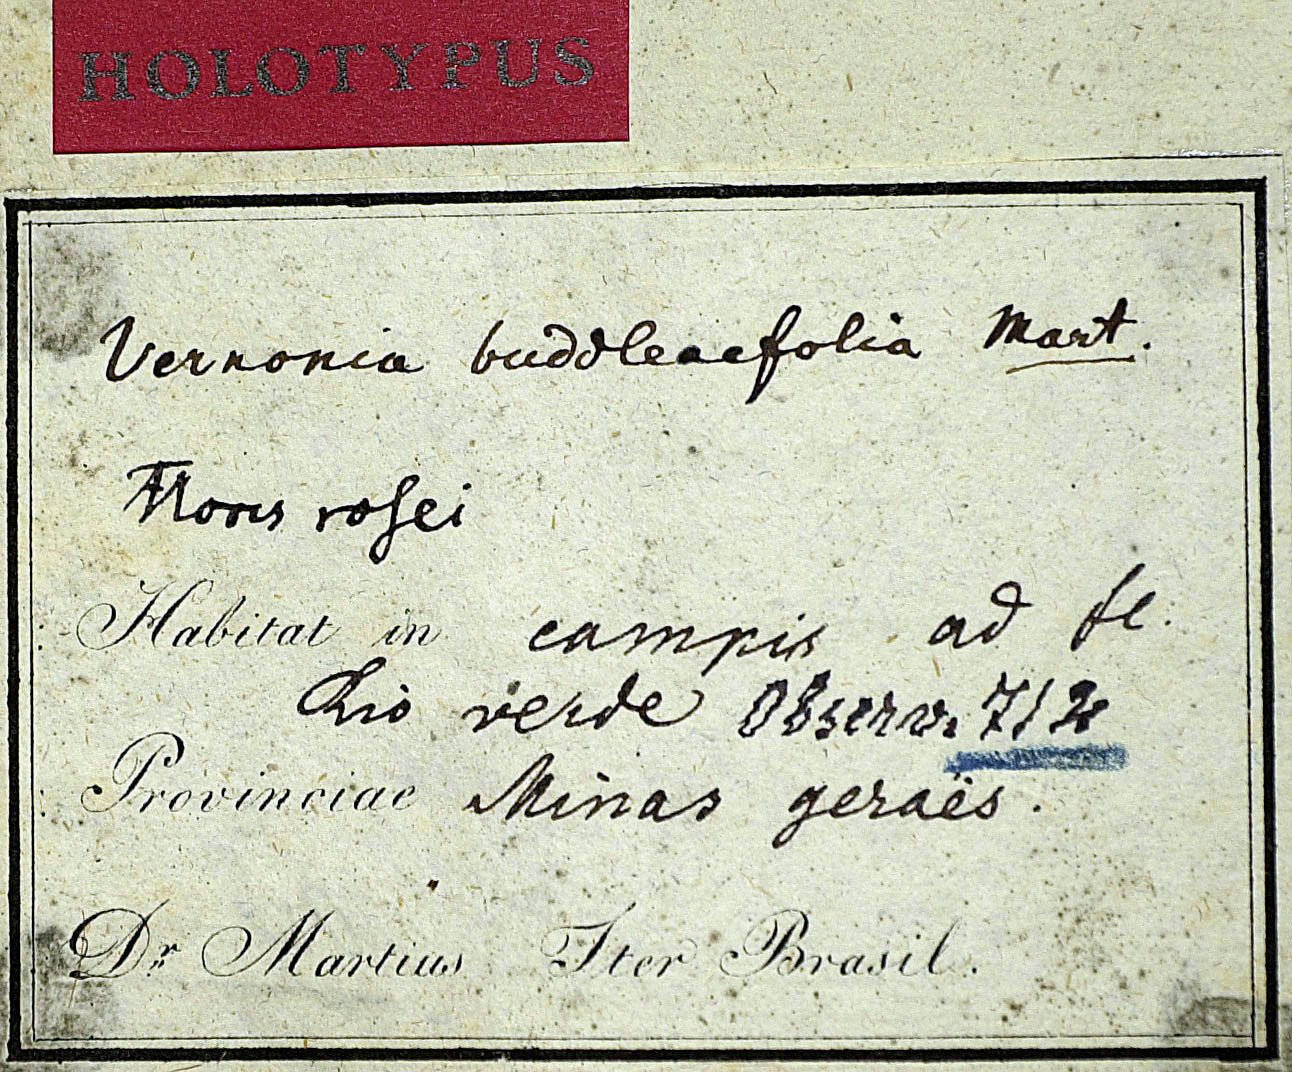 HOLOTYPUS
Vernonia buddleaefolia Mart.
Flores rosei
Habitat in campis ad fl.
Rio verde Observ. 712
Provinciae Minas geraës.
Dr. Martius Iter Brasil.